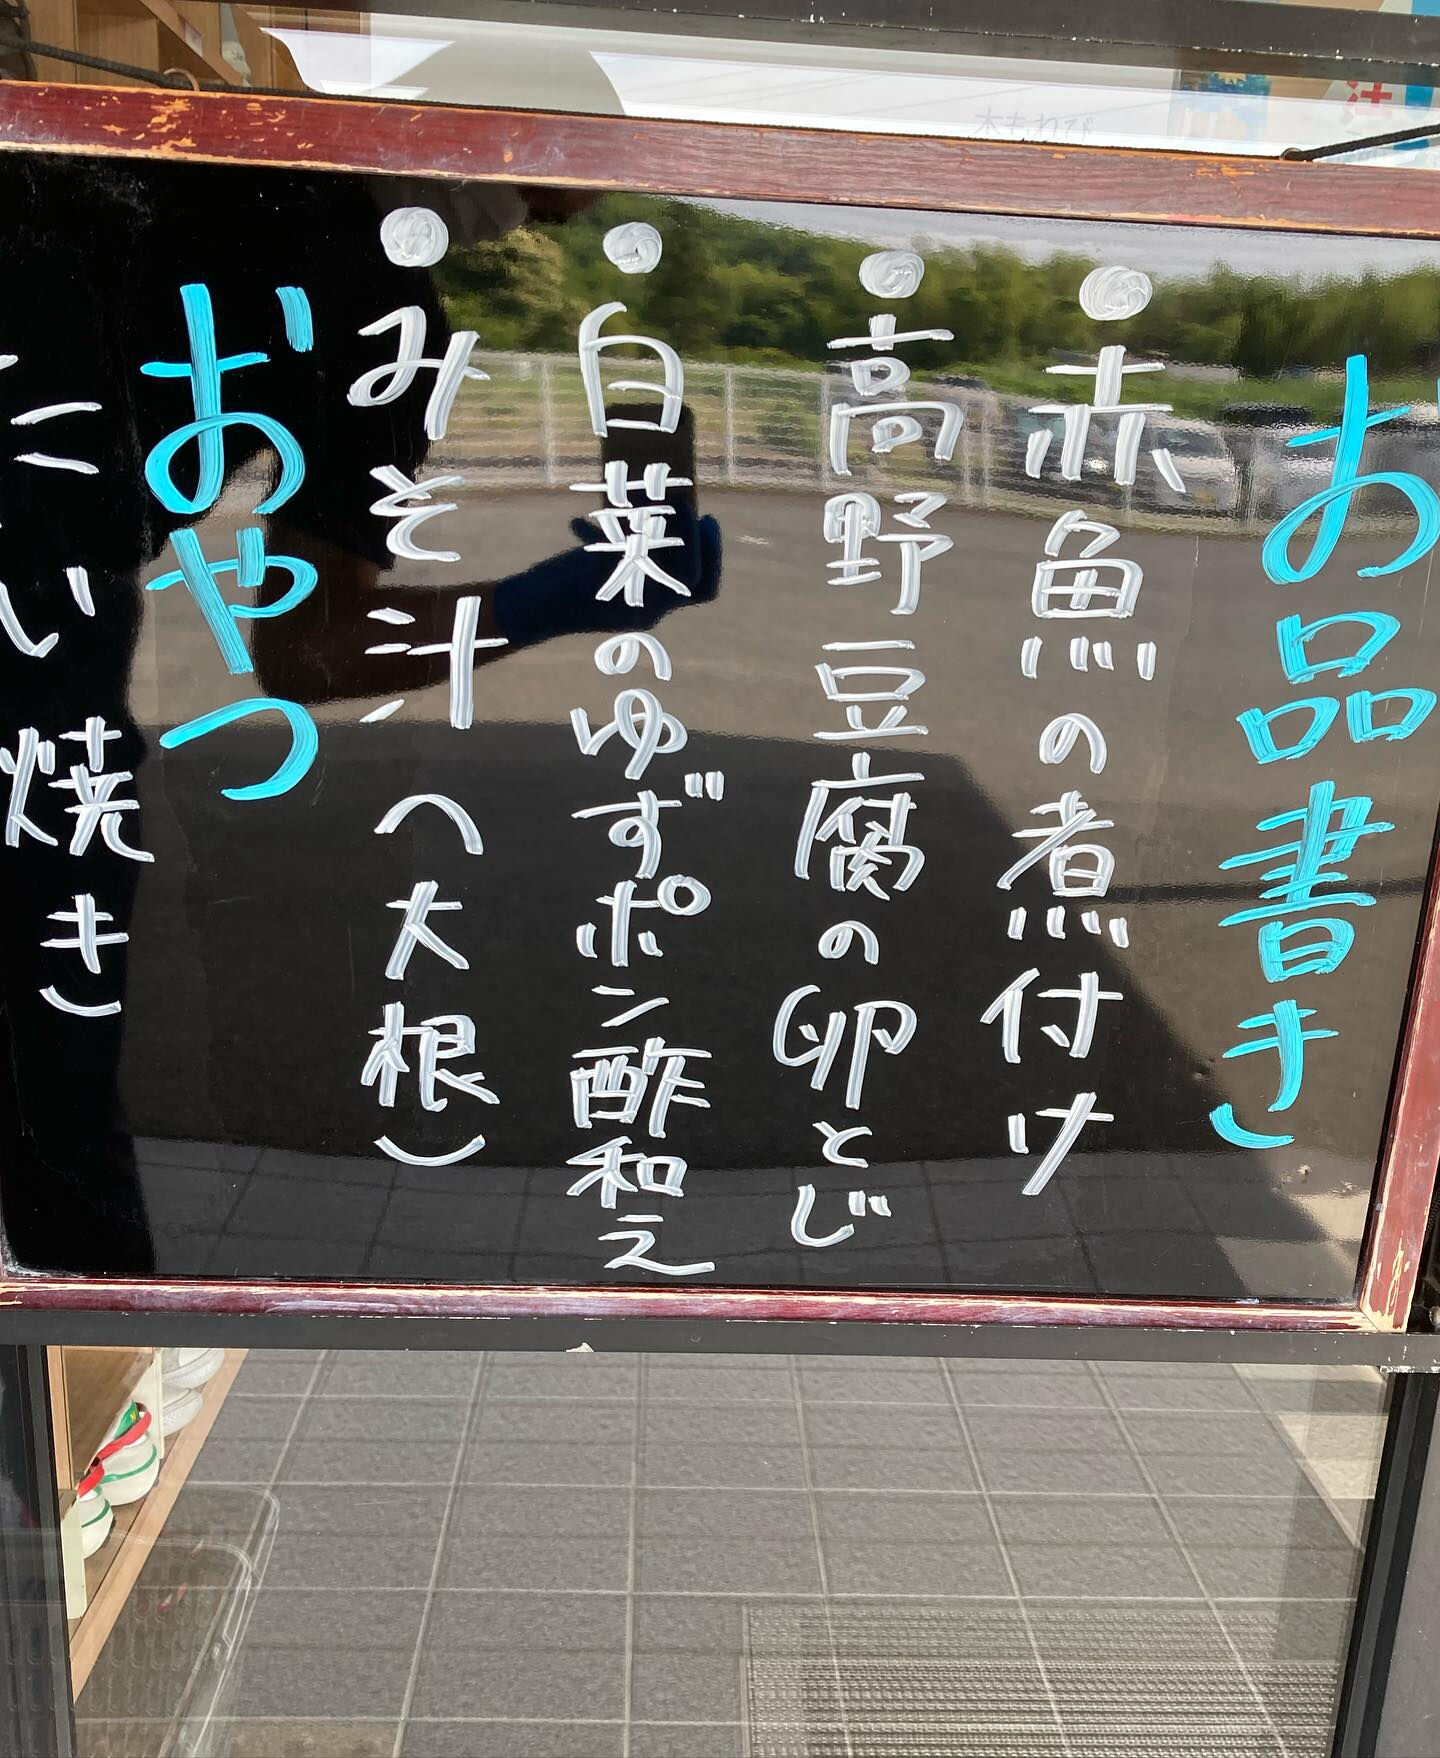 お品書き
赤魚の煮付け
高野豆腐の卵とじ
白菜のゆずポン酢和え
みそ汁（大根）
おやつ
たい焼き
注